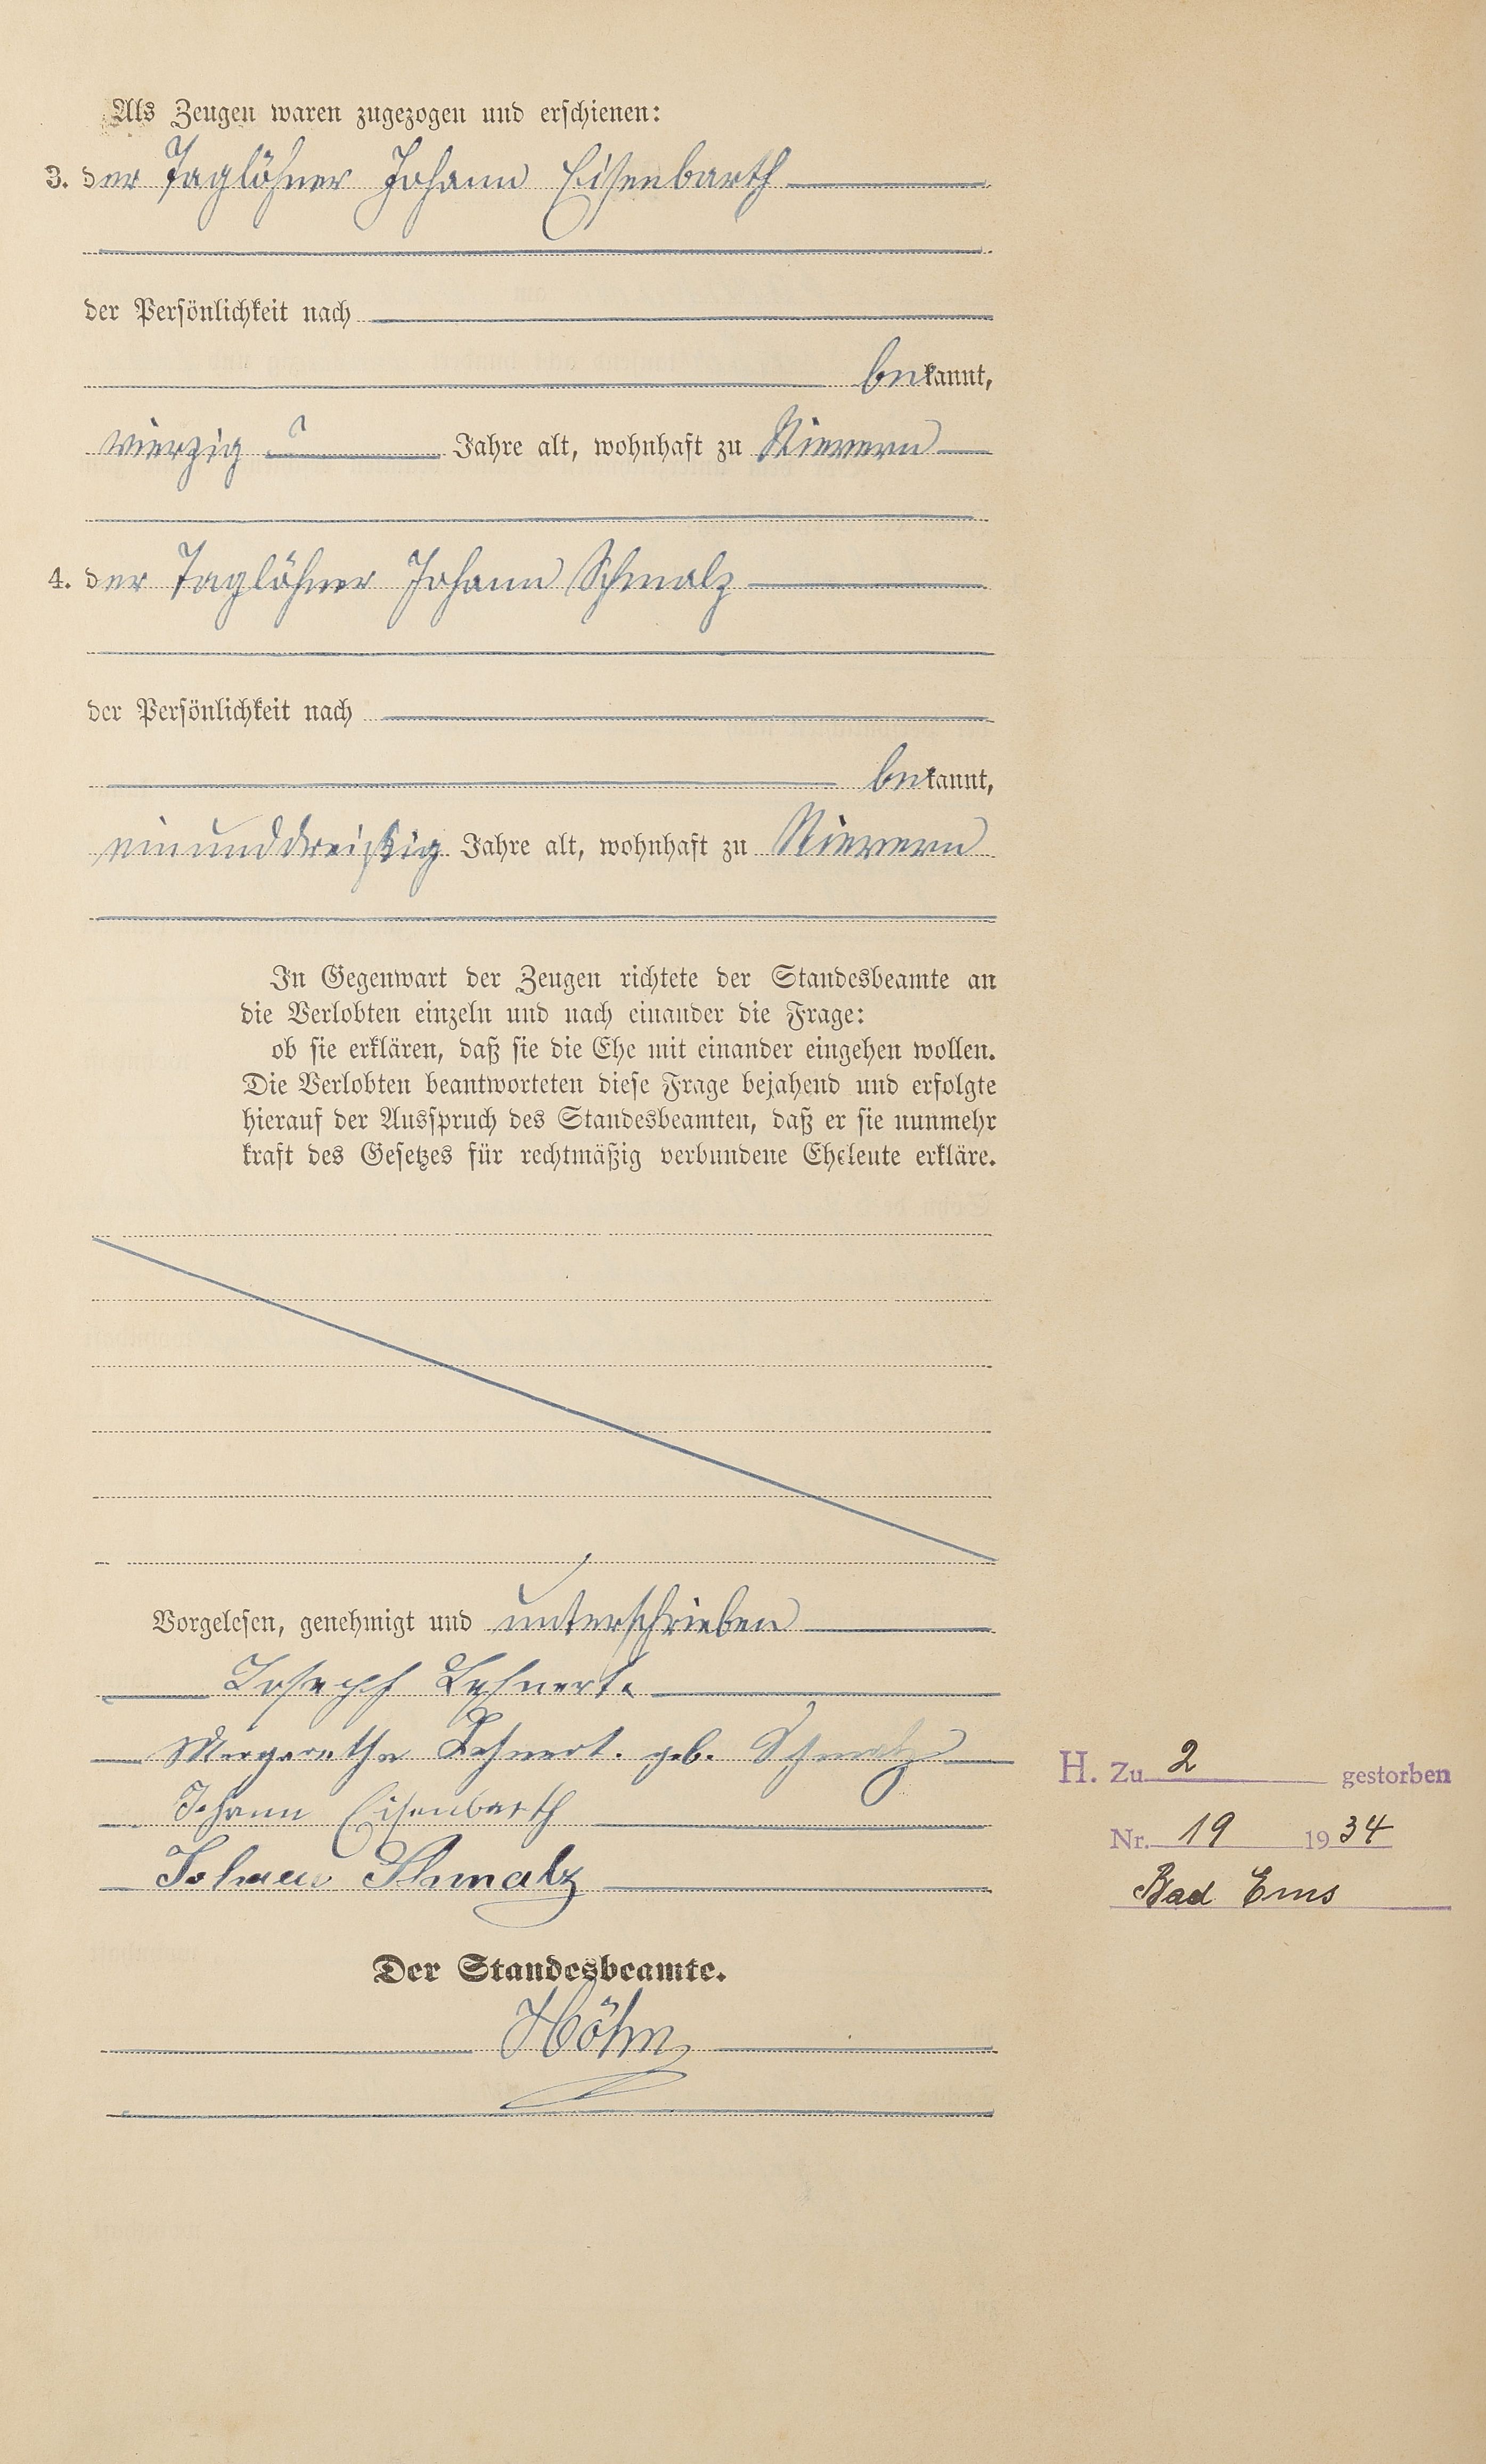 Als Zeugen waren zugezogen und erschienen:
3. der Taglöhner Johann Eisenbarth
der Persönlichkeit nach
bekannt,
vierzig Jahre alt, wohnhaft zu Nievern
4. der Taglöhner Johann Schmalz
der Persönlichkeit nach
bekannt,
einunddreißig Jahre alt, wohnhaft zu Nievern
In Gegenwart der Zeugen richtete der Standesbeamte an
die Verlobten einzeln und nach einander die Frage:
ob sie erklären, daß sie die Ehe mit einander eingehen wollen.
Die Verlobten beantworteten diese Frage bejahend und erfolgte
hierauf der Ausspruch des Standesbeamten, daß er sie nunmehr
kraft des Gesetzes für rechtmäßig verbundene Eheleute erkläre.
Vorgelesen, genehmigt und unterschrieben
Joseph Lehnert.
Margaretha Lehnert. geb. Schmalz
Johann Eisenbarth
Johann Schmalz
H. Zu 2 gestorben
Nr. 19 1934
Bad Ems
Der Standesbeamte.
Höhn